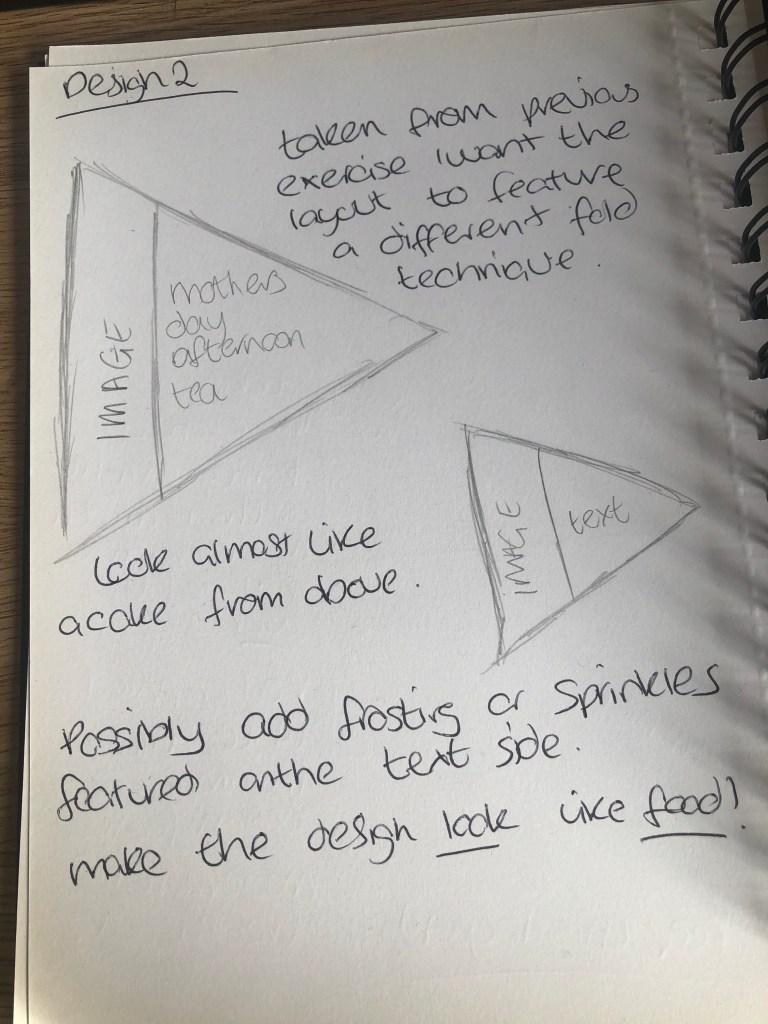 Design 2
taken from previous
exercise I want the
layout to feature
a different fold
technique.
IMAGE
mothers
day
afternoon
tea
IMAGE
text
look almost like
a cake from above.
Possibly add frosting or sprinkles
featured on the text side.
make the design look like food!